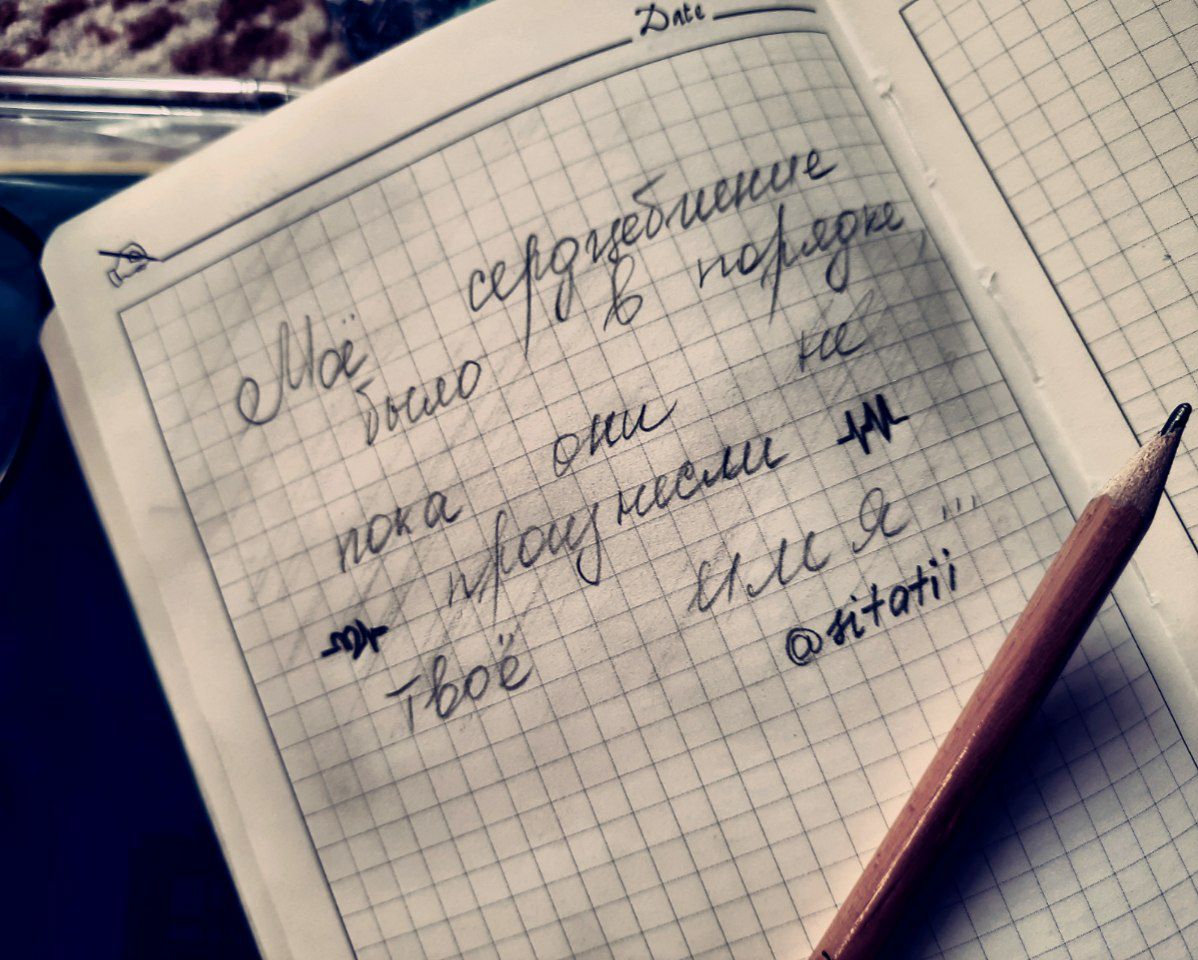 Date
Моё сердцебиение
было в порядке,
пока они не
произнесли
твоё имя...
@sitatii